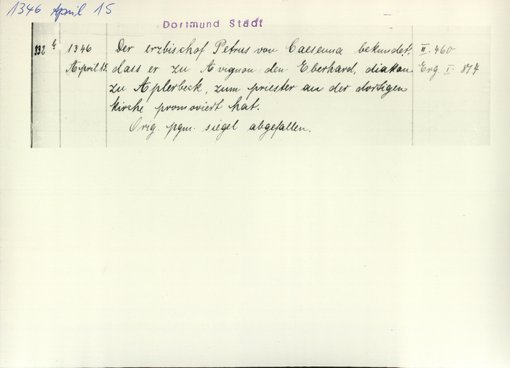 1346 April 15
Dortmund Stadt
232 1346 Der erzbischof Petrus von Caesenna bekundet, II. 460
April 15. dass er zu Avignon den Eberhard, diakon Erg I 877
zu Aplerbeck, zum priester an der dortigen
kirche promoviert hat.
Orig. pgm. siegel abgefallen.